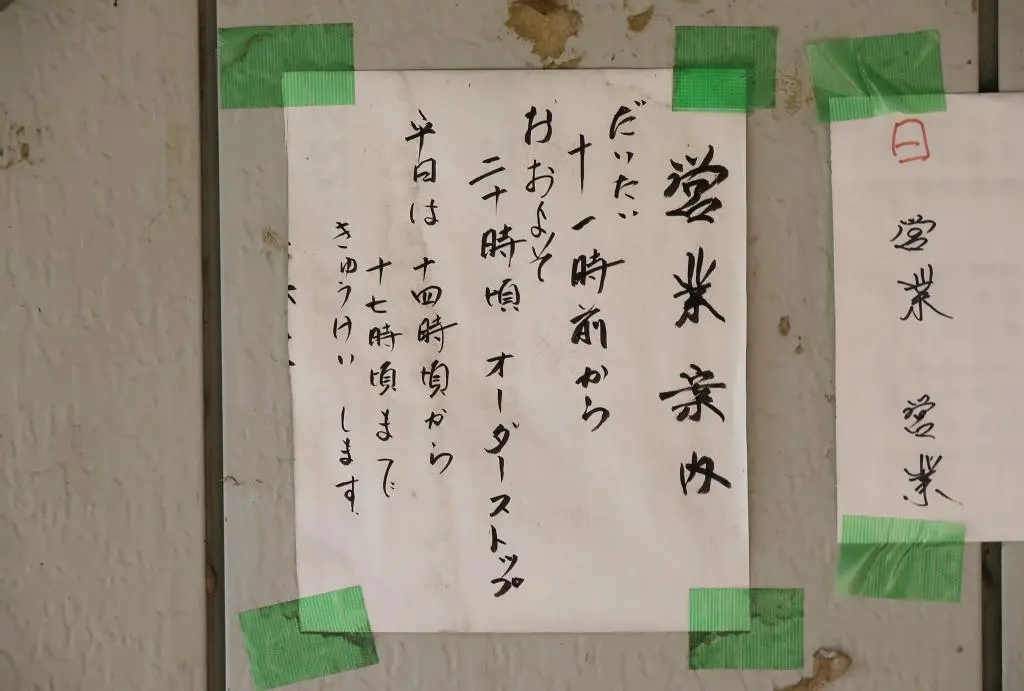 営業案内
だいたい
十一時前から
おおよそ
二十時頃 オーダーストップ
平日は 十四時頃から
十七時頃まで
きゅうけい します
日 営業 営業